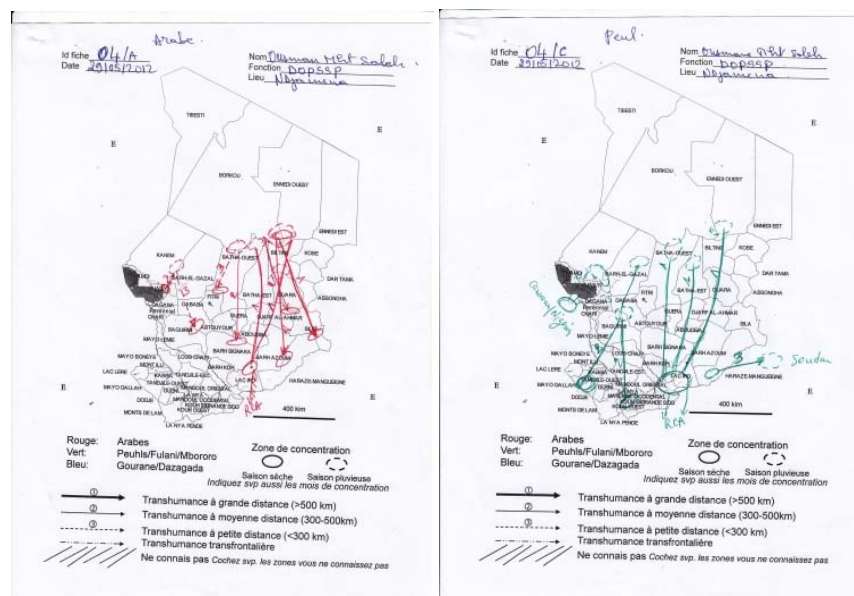 Arabe.
Id fiche 04/A
Date 29/05/2012
Nom Ousman Mht Saleh.
Fonction DOPSSP
Lieu Ndjamena
TIBESTI
E
E
BORKOU
ENNEDI OUEST
ENNEDI EST
KANEM
BATHA-OUEST
BILTINE
KOBE
BARH-EL-GAZAL
DAR TAMA
FITRI
BATHA-EST
OUARA
ASSONGHA
DAGANA
DABABA
GUERA
DJARF AL-AHMAR
SILA
BAGUIRMI
ABTOUYOUR
ABOUDEIA
MAYO-LEMIE
BARH SIGNAKA
MAYO BONEYE
LOUG CHARY
BARH AZOUM
MONT ILLI
BARH KOH
LAC LERE
LAC IRO
HARAZE-MANGUEIGNE
MAYO DALLAH
TANDJILE-OUEST
MANDOUL ORIENTAL
E
E
DODJE
MANDOUL OCCIDENTAL
MONTS DE LAM
KOUH OUEST
LA NYA PENDE
RCA
400 km
Rouge: Arabes
Vert: Peuhls/Fulani/Mbororo
Bleu: Gourane/Dazagada
Zone de concentration
Saison sèche
Saison pluvieuse
Indiquez svp aussi les mois de concentration
① Transhumance à grande distance (>500 km)
② Transhumance à moyenne distance (300-500km)
③ Transhumance à petite distance (<300 km)
Transhumance transfrontalière
Ne connais pas Cochez svp. les zones vous ne connaissez pas
Peul.
Id fiche 04/C
Date 29/05/2012
Nom Ousmane Mht Saleh
Fonction DOPSSP
Lieu Ndjamena
TIBESTI
E
E
BORKOU
ENNEDI OUEST
ENNEDI EST
KANEM
BATHA-OUEST
BILTINE
KOBE
BARH-EL-GAZAL
DAR TAMA
FITRI
BATHA-EST
OUARA
ASSONGHA
DAGANA
DABABA
GUERA
DJARF AL-AHMAR
SILA
BAGUIRMI
ABTOUYOUR
ABOUDEIA
MAYO-LEMIE
BARH SIGNAKA
MAYO BONEYE
LOUG CHARY
BARH AZOUM
3
Soudan
MONT ILLI
BARH KOH
LAC LERE
LAC IRO
HARAZE-MANGUEIGNE
MAYO DALLAH
MANDOUL ORIENTAL
E
E
DODJE
MANDOUL OCCIDENTAL
MONTS DE LAM
KOUH OUEST
LA NYA PENDE
RCA
400 km
Rouge: Arabes
Vert: Peuhls/Fulani/Mbororo
Bleu: Gourane/Dazagada
Zone de concentration
Saison sèche
Saison pluvieuse
Indiquez svp aussi les mois de concentration
① Transhumance à grande distance (>500 km)
② Transhumance à moyenne distance (300-500km)
③ Transhumance à petite distance (<300 km)
Transhumance transfrontalière
Ne connais pas Cochez svp. les zones vous ne connaissez pas